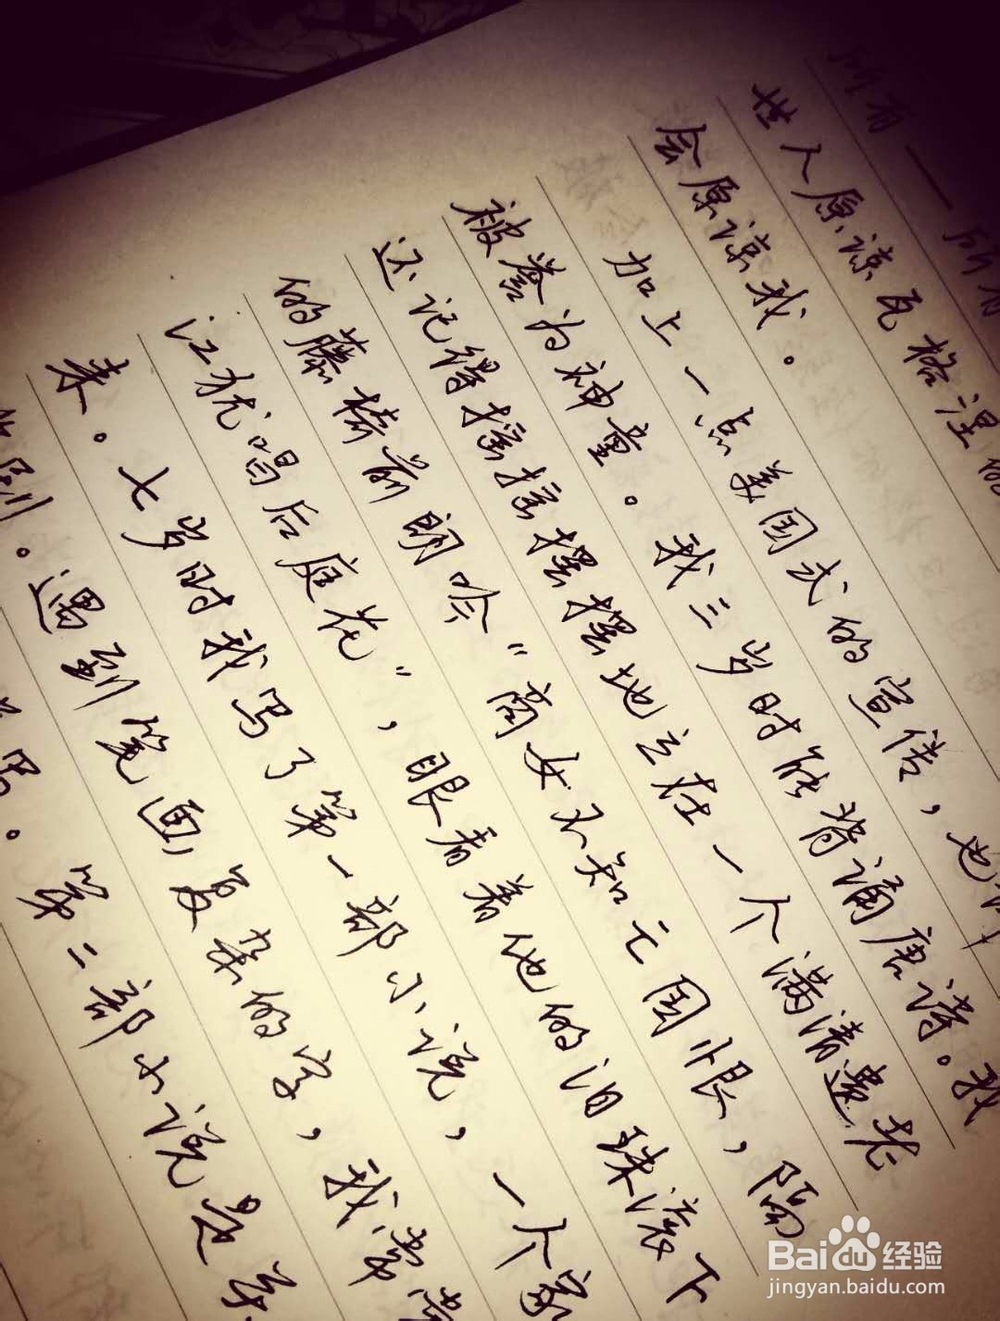 世人原谅瓦格涅
会原谅我。
加上一点美国式的宣传，也许
被誉为神童。我三岁时能背诵唐诗。我
还记得摇摇摆摆地立在一个满清遗老
的藤椅前朗吟“商女不知亡国恨，隔
江犹唱后庭花”，眼看着他的泪珠滚下
来。七岁时我写了第一部小说，一个家
剧。遇到笔画复杂的字，我常常
。第二部小说是关
Baidu经验
jingyan.baidu.com